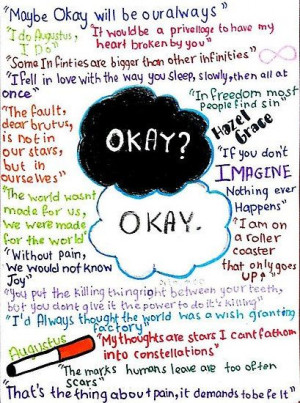 "Maybe Okay will be our always"
"I do Augustus,
I Do"
"It would be a privellage to have my
heart broken by you"
"Some Infinties are bigger than other infinities"
"I fell in love with the way you sleep, slowly, then all at
once"
"In freedom most
people find sin"
"The fault,
dear brutus,
is not in
our stars,
but in
ourselves"
OKAY?
Hazel
Grace
"If you don't
IMAGINE
Nothing ever
Happens"
"The world wasnt
made for us,
we were made
for the world"
OKAY.
"I am on
a roller
coaster
that only goes
up"
"Without pain,
we would not know
Joy"
"you put the killing thing right between your teeth,
but you dont give it the power to do it's killing"
"I'd Always thought the world was a wish granting
factory"
Augustus
"My thoughts are stars I cant fathom
into constellations"
"The marks humans leave are too often
scars"
"That's the thing about pain, it demands to be felt"